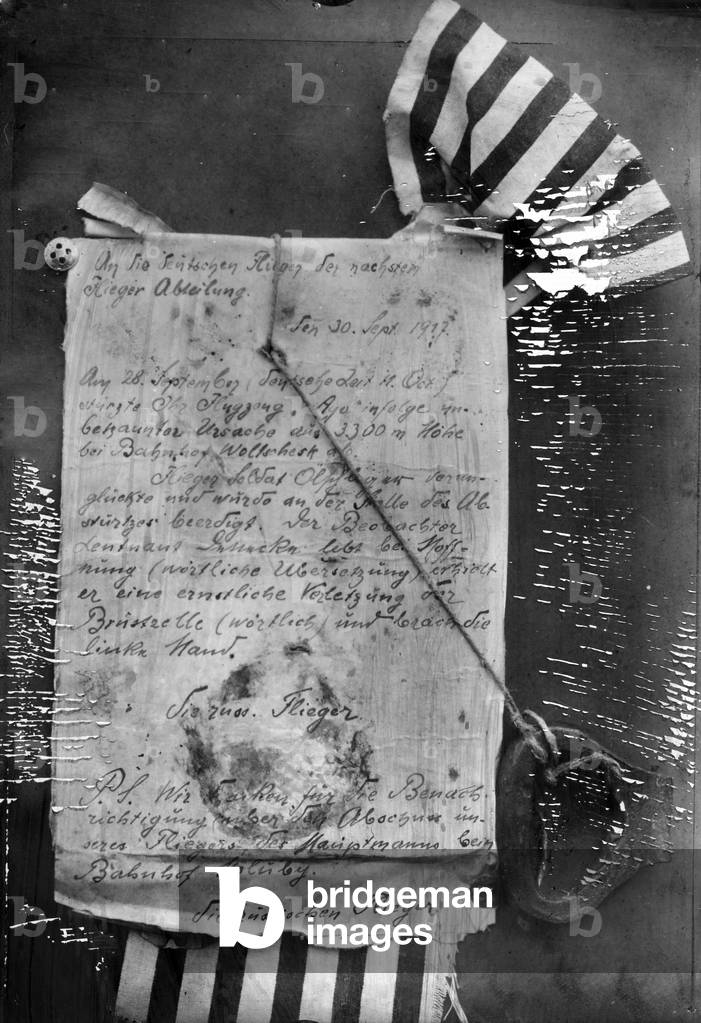 An die deutschen Flieger der nächsten
Flieger Abteilung.
den 30. Sept. 1917.
Am 28. September (deutsche Zeit 11. Oct.)
stürzte Ihr Flugzeug "Ago" infolge un-
bekannter Ursache aus 3300 m Höhe
bei Bahnhof ab.
Flieger Soldat verun-
glückte und wurde an der Stelle des Ab-
sturzes beerdigt. Der Beobachter
Leutnant lebt bei Hoff-
nung (wörtliche Übersetzung) erhielt
er eine ernstliche Verletzung der
(wörtlich) und brach die
linke Hand.
Die russ. Flieger
P.S. Wir danken für die Benach-
richtigung über den Abschuss un-
seres Fliegers des Hauptmanns beim
Bahnhof
Die russischen Flieger
b bridgeman
images